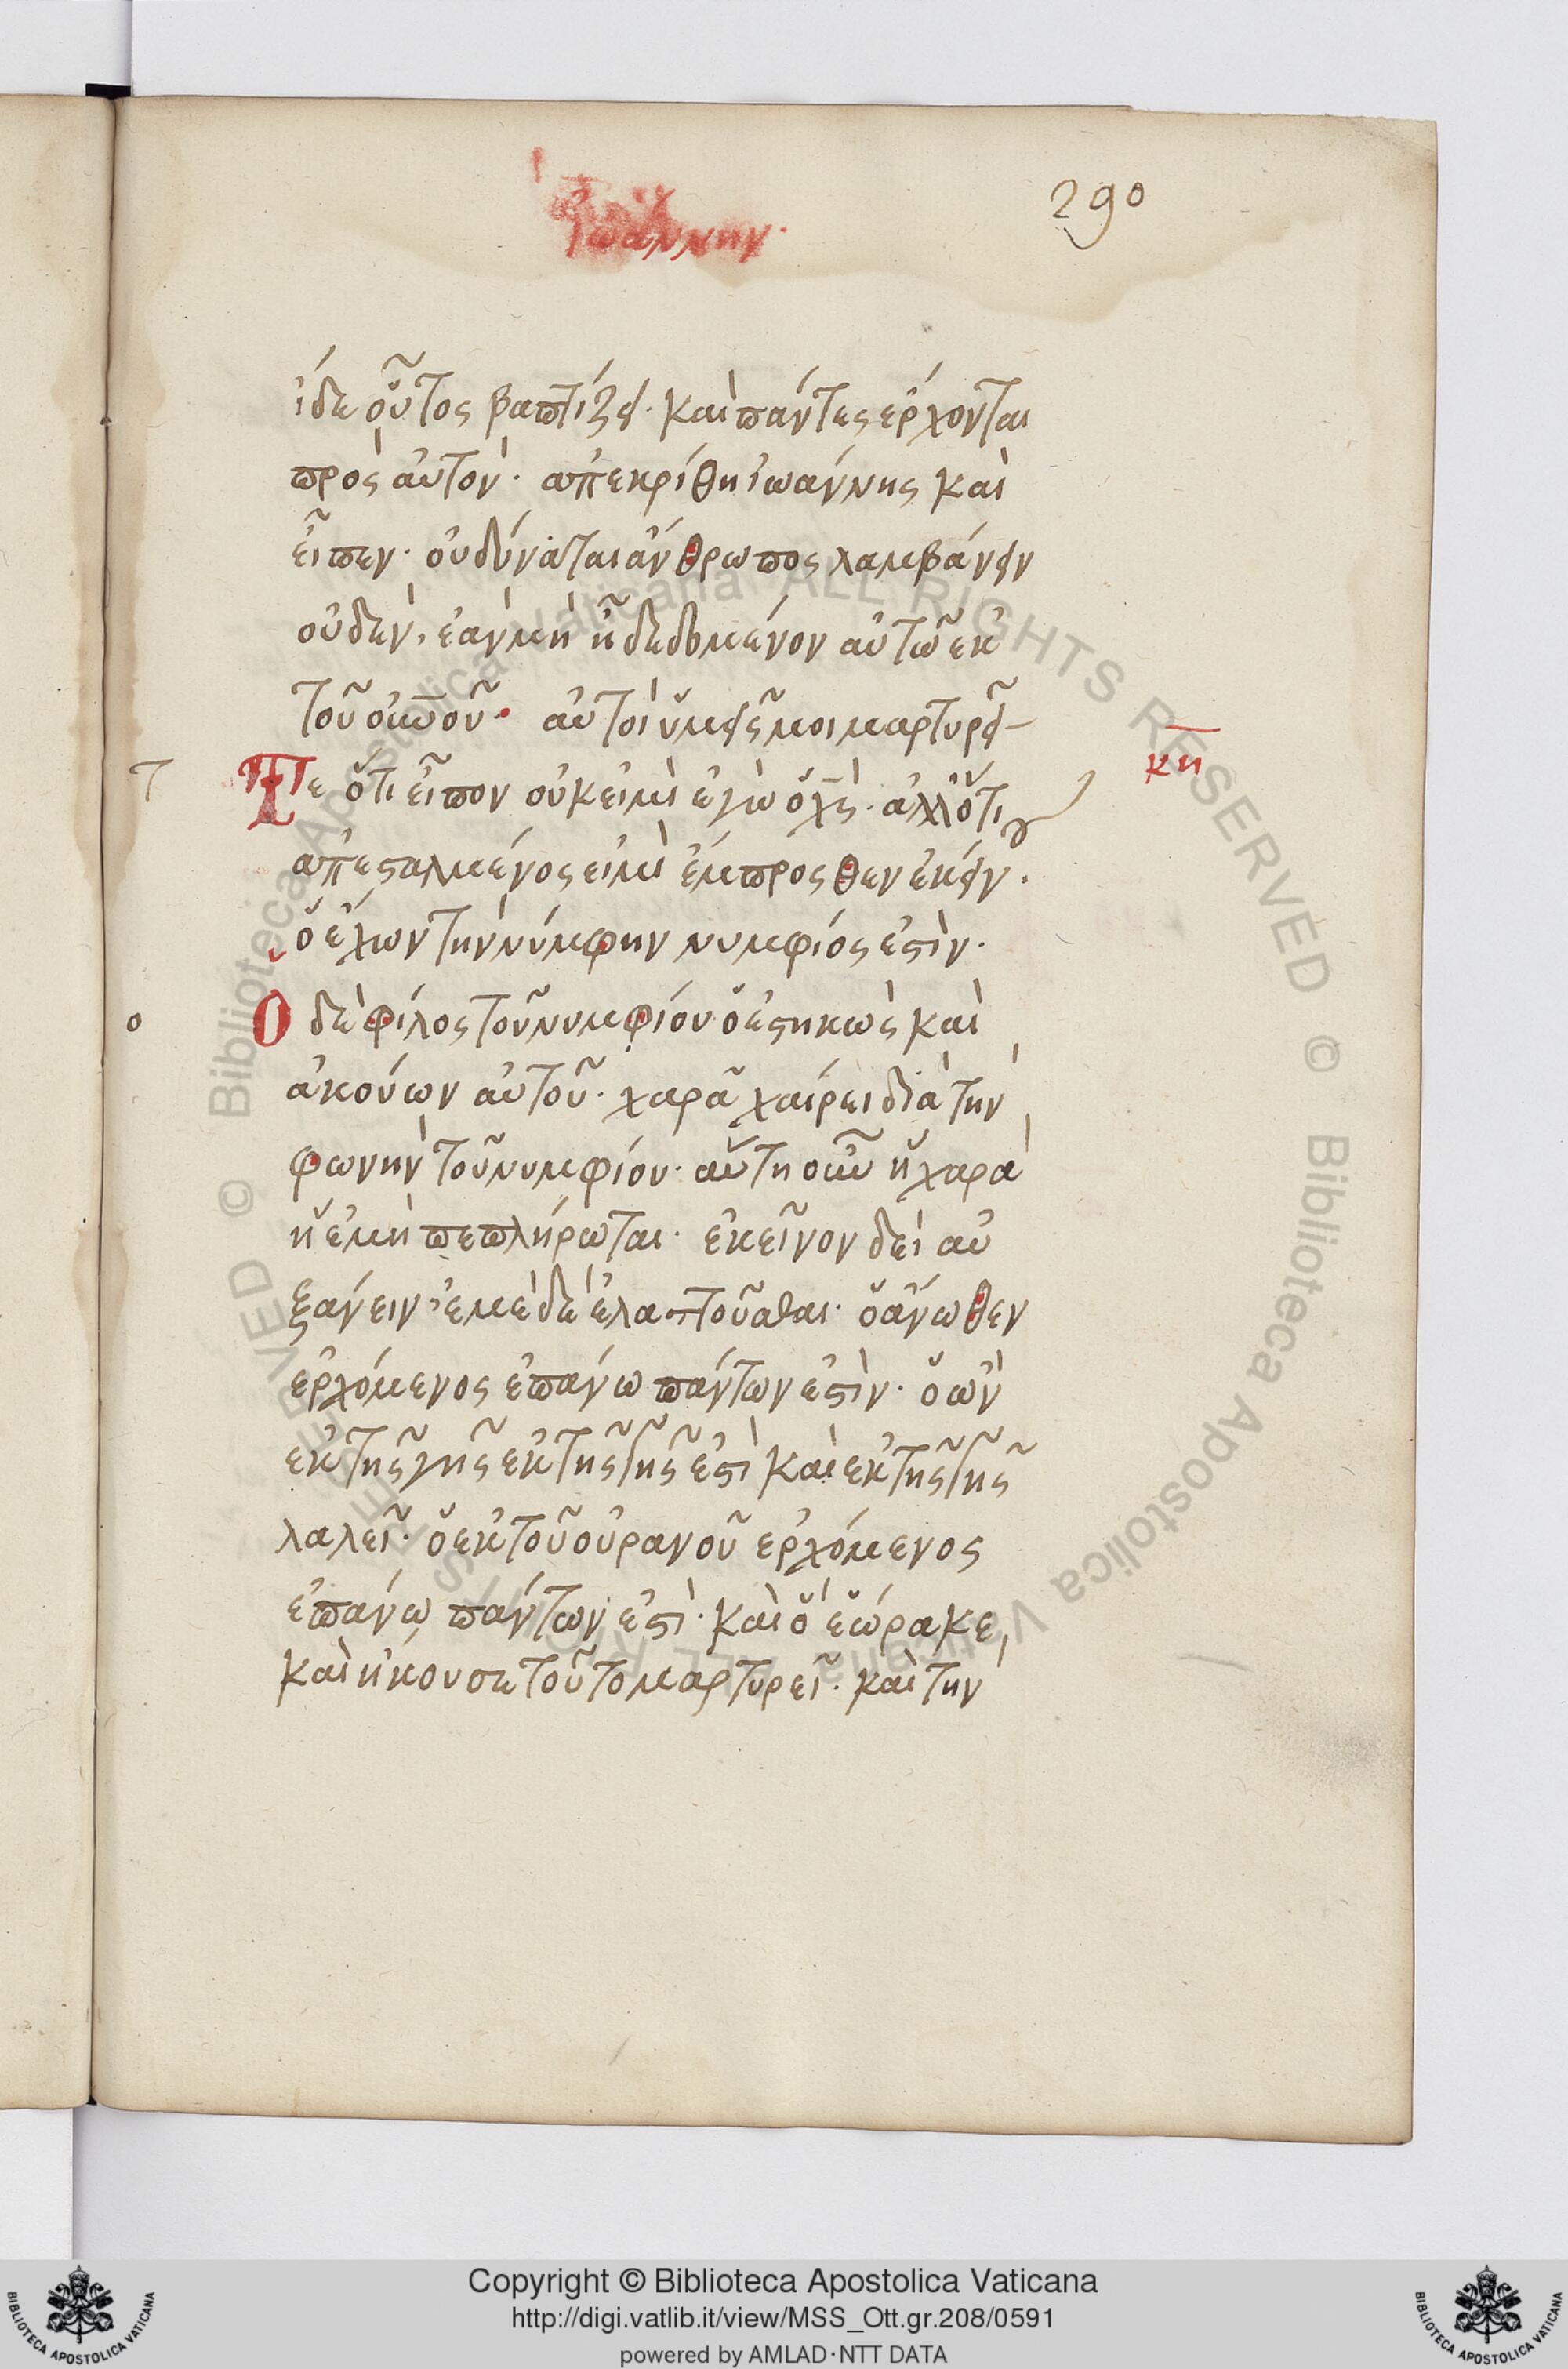 Ἰωάννην·
290
ἴδε οὗτος βαπτίζει· καὶ πάντες ἔρχονται
πρὸς αὐτόν· ἀπεκρίθη ἰωάννης καὶ
εἶπεν· οὐ δύναται ἄνθρωπος λαμβάνειν
οὐδὲν, ἐὰν μὴ ἦ δεδομένον αὐτῶ ἐκ
τοῦ οὐνοῦ· αὐτοὶ ὑμεῖς μοι μαρτυρεῖ-
κη
τ
Τε ὅτι εἶπον οὐκ εἰμὶ ἐγὼ ὁ χς· ἀλλ' ὅτι
ἀπεσταλμένος εἰμὶ ἔμπροσθεν ἐκείν·
ὁ ἔχων τὴν νύμφην νυμφίος ἐστὶν·
ο
Ὁ δὲ φίλος τοῦ νυμφίου ὁ ἑστηκὼς καὶ
ἀκούων αὐτοῦ· χαρᾶ χαίρει διὰ τὴν
φωνὴν τοῦ νυμφίου· αὕτη οὖν ἡ χαρὰ
ἡ ἐμὴ πεπλήρωται· ἐκεῖνον δεῖ αὐ
ξάνειν· ἐμὲ δὲ ἐλαττοῦσθαι· ὁ ἄνωθεν
ἐρχόμενος ἐπάνω πάντων ἐστὶν· ὁ ὢν
ἐκ τῆς γῆς ἐκ τῆς γῆς ἐστὶ καὶ ἐκ τῆς γῆς
λαλεῖ· ὁ ἐκ τοῦ οὐρανοῦ ἐρχόμενος
ἐπάνω πάντων ἐστὶ· καὶ ὃ ἑώρακε
καὶ ἤκουσε τοῦτο μαρτυρεῖ· καὶ τὴν
© Biblioteca Apostolica Vaticana ALL RIGHTS RESERVED © Biblioteca Apostolica Vaticana ALL RIGHTS RESERVED
Copyright © Biblioteca Apostolica Vaticana
http://digi.vatlib.it/view/MSS_Ott.gr.208/0591
powered by AMLAD·NTT DATA
BIBLIOTECA APOSTOLICA VATICANA
BIBLIOTECA APOSTOLICA VATICANA